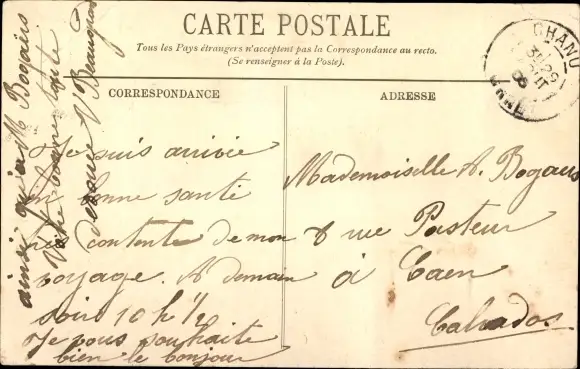 CARTE POSTALE
Tous les Pays étrangers n'acceptent pas la Correspondance au recto.
(Se renseigner à la Poste).
CORRESPONDANCE
Je suis arrivée
en bonne santé
très contente de mon
voyage. A demain
soir 10 h 1/2
Je vous souhaite
bien le bonjour
ainsi qu'à M Bogairs
Votre bonne
dévouée V Beaugrard
ADRESSE
Mademoiselle A. Bogairs
8 rue Pasteur
à Caen
Calvados
CHANU
ORNE